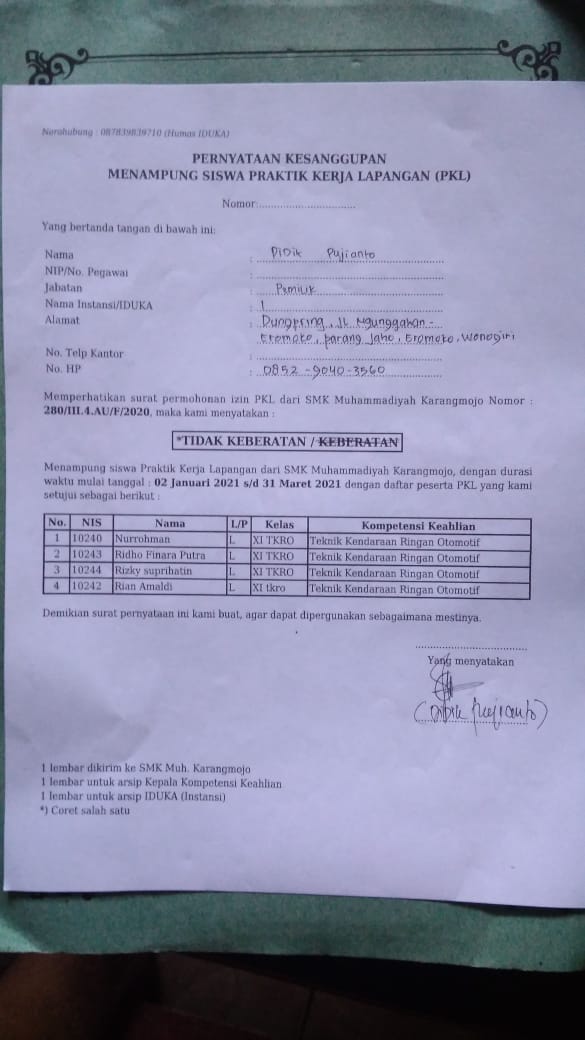 Narahubung : 087839839710 (Humas IDUKA)
PERNYATAAN KESANGGUPAN
MENAMPUNG SISWA PRAKTIK KERJA LAPANGAN (PKL)
Nomor................................
Yang bertanda tangan di bawah ini:
Nama : Didik Pujianto
NIP/No. Pegawai :
Jabatan : Pemilik
Nama Instansi/IDUKA :
Alamat : Dungpring, Jl. Ngunggahan -
Eromoko, parang Jaho, Eromoko, Wonogiri
No. Telp Kantor :
No. HP : 0852 - 9040 - 3560
Memperhatikan surat permohonan izin PKL dari SMK Muhammadiyah Karangmojo Nomor :
280/III.4.AU/F/2020, maka kami menyatakan :
*TIDAK KEBERATAN / KEBERATAN
Menampung siswa Praktik Kerja Lapangan dari SMK Muhammadiyah Karangmojo, dengan durasi
waktu mulai tanggal : 02 Januari 2021 s/d 31 Maret 2021 dengan daftar peserta PKL yang kami
setujui sebagai berikut :
No. NIS Nama L/P Kelas Kompetensi Keahlian
1 10240 Nurrohman L XI TKRO Teknik Kendaraan Ringan Otomotif
2 10243 Ridho Finara Putra L XI TKRO Teknik Kendaraan Ringan Otomotif
3 10244 Rizky suprihatin L XI TKRO Teknik Kendaraan Ringan Otomotif
4 10242 Rian Amaldi L XI tkro Teknik Kendaraan Ringan Otomotif
Demikian surat pernyataan ini kami buat, agar dapat dipergunakan sebagaimana mestinya.
Yang menyatakan
(Didik Pujianto)
1 lembar dikirim ke SMK Muh. Karangmojo
1 lembar untuk arsip Kepala Kompetensi Keahlian
1 lembar untuk arsip IDUKA (Instansi)
*) Coret salah satu